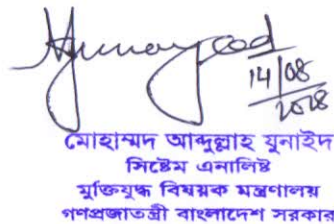 14/08
2028
মোহাম্মদ আব্দুল্লাহ যুনাইদ
সিষ্টেম এনালিষ্ট
মুক্তিযুদ্ধ বিষয়ক মন্ত্রণালয়
গণপ্রজাতন্ত্রী বাংলাদেশ সরকার